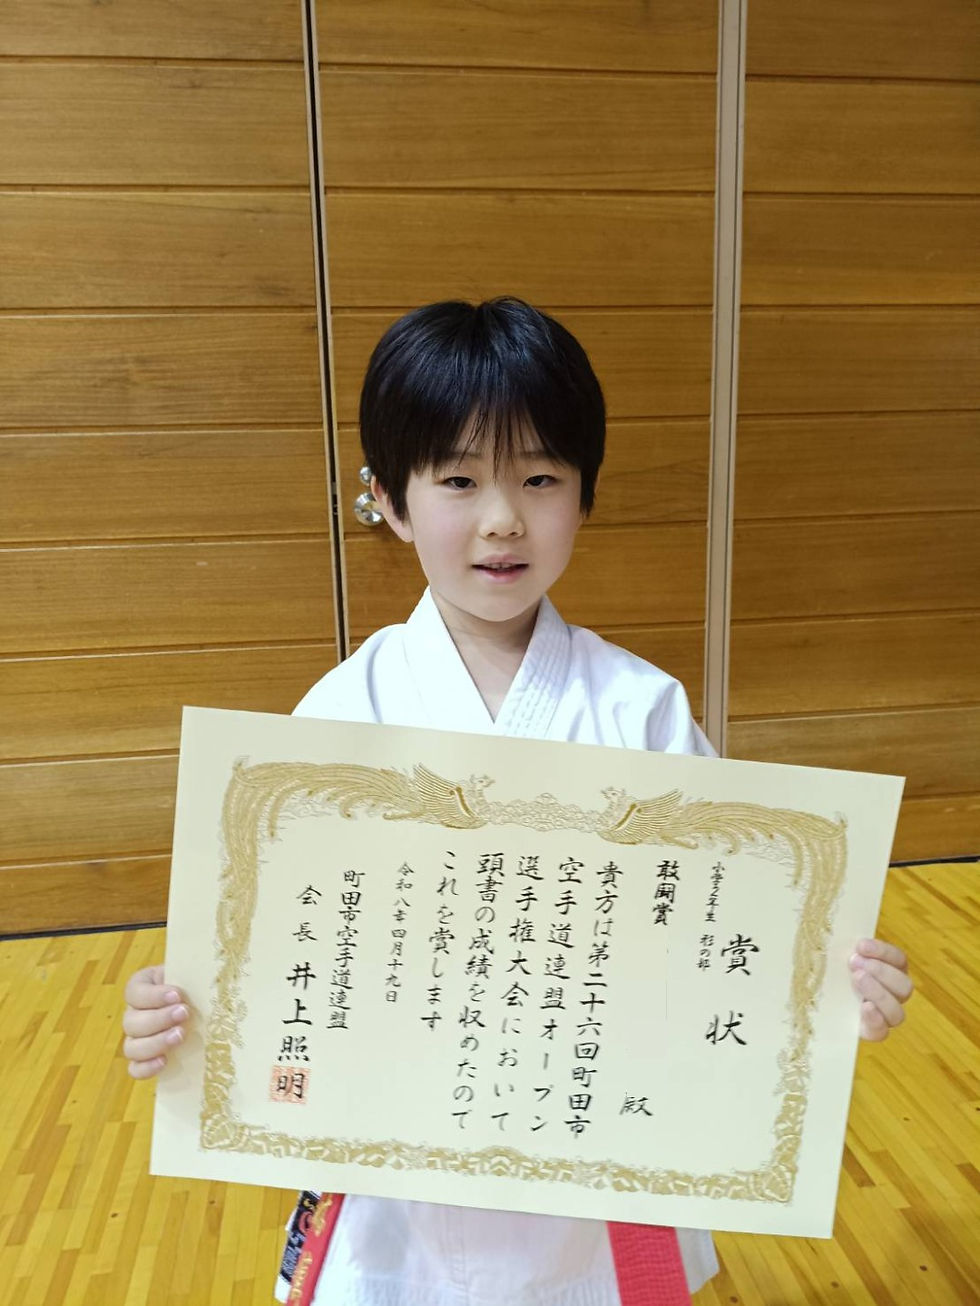 賞状
小学2年生 形の部
敢闘賞
殿
貴方は第二十六回町田市
空手道連盟オープン
選手権大会において
頭書の成績を収めたので
これを賞します
令和八年四月十九日
町田市空手道連盟
会長 井上照明